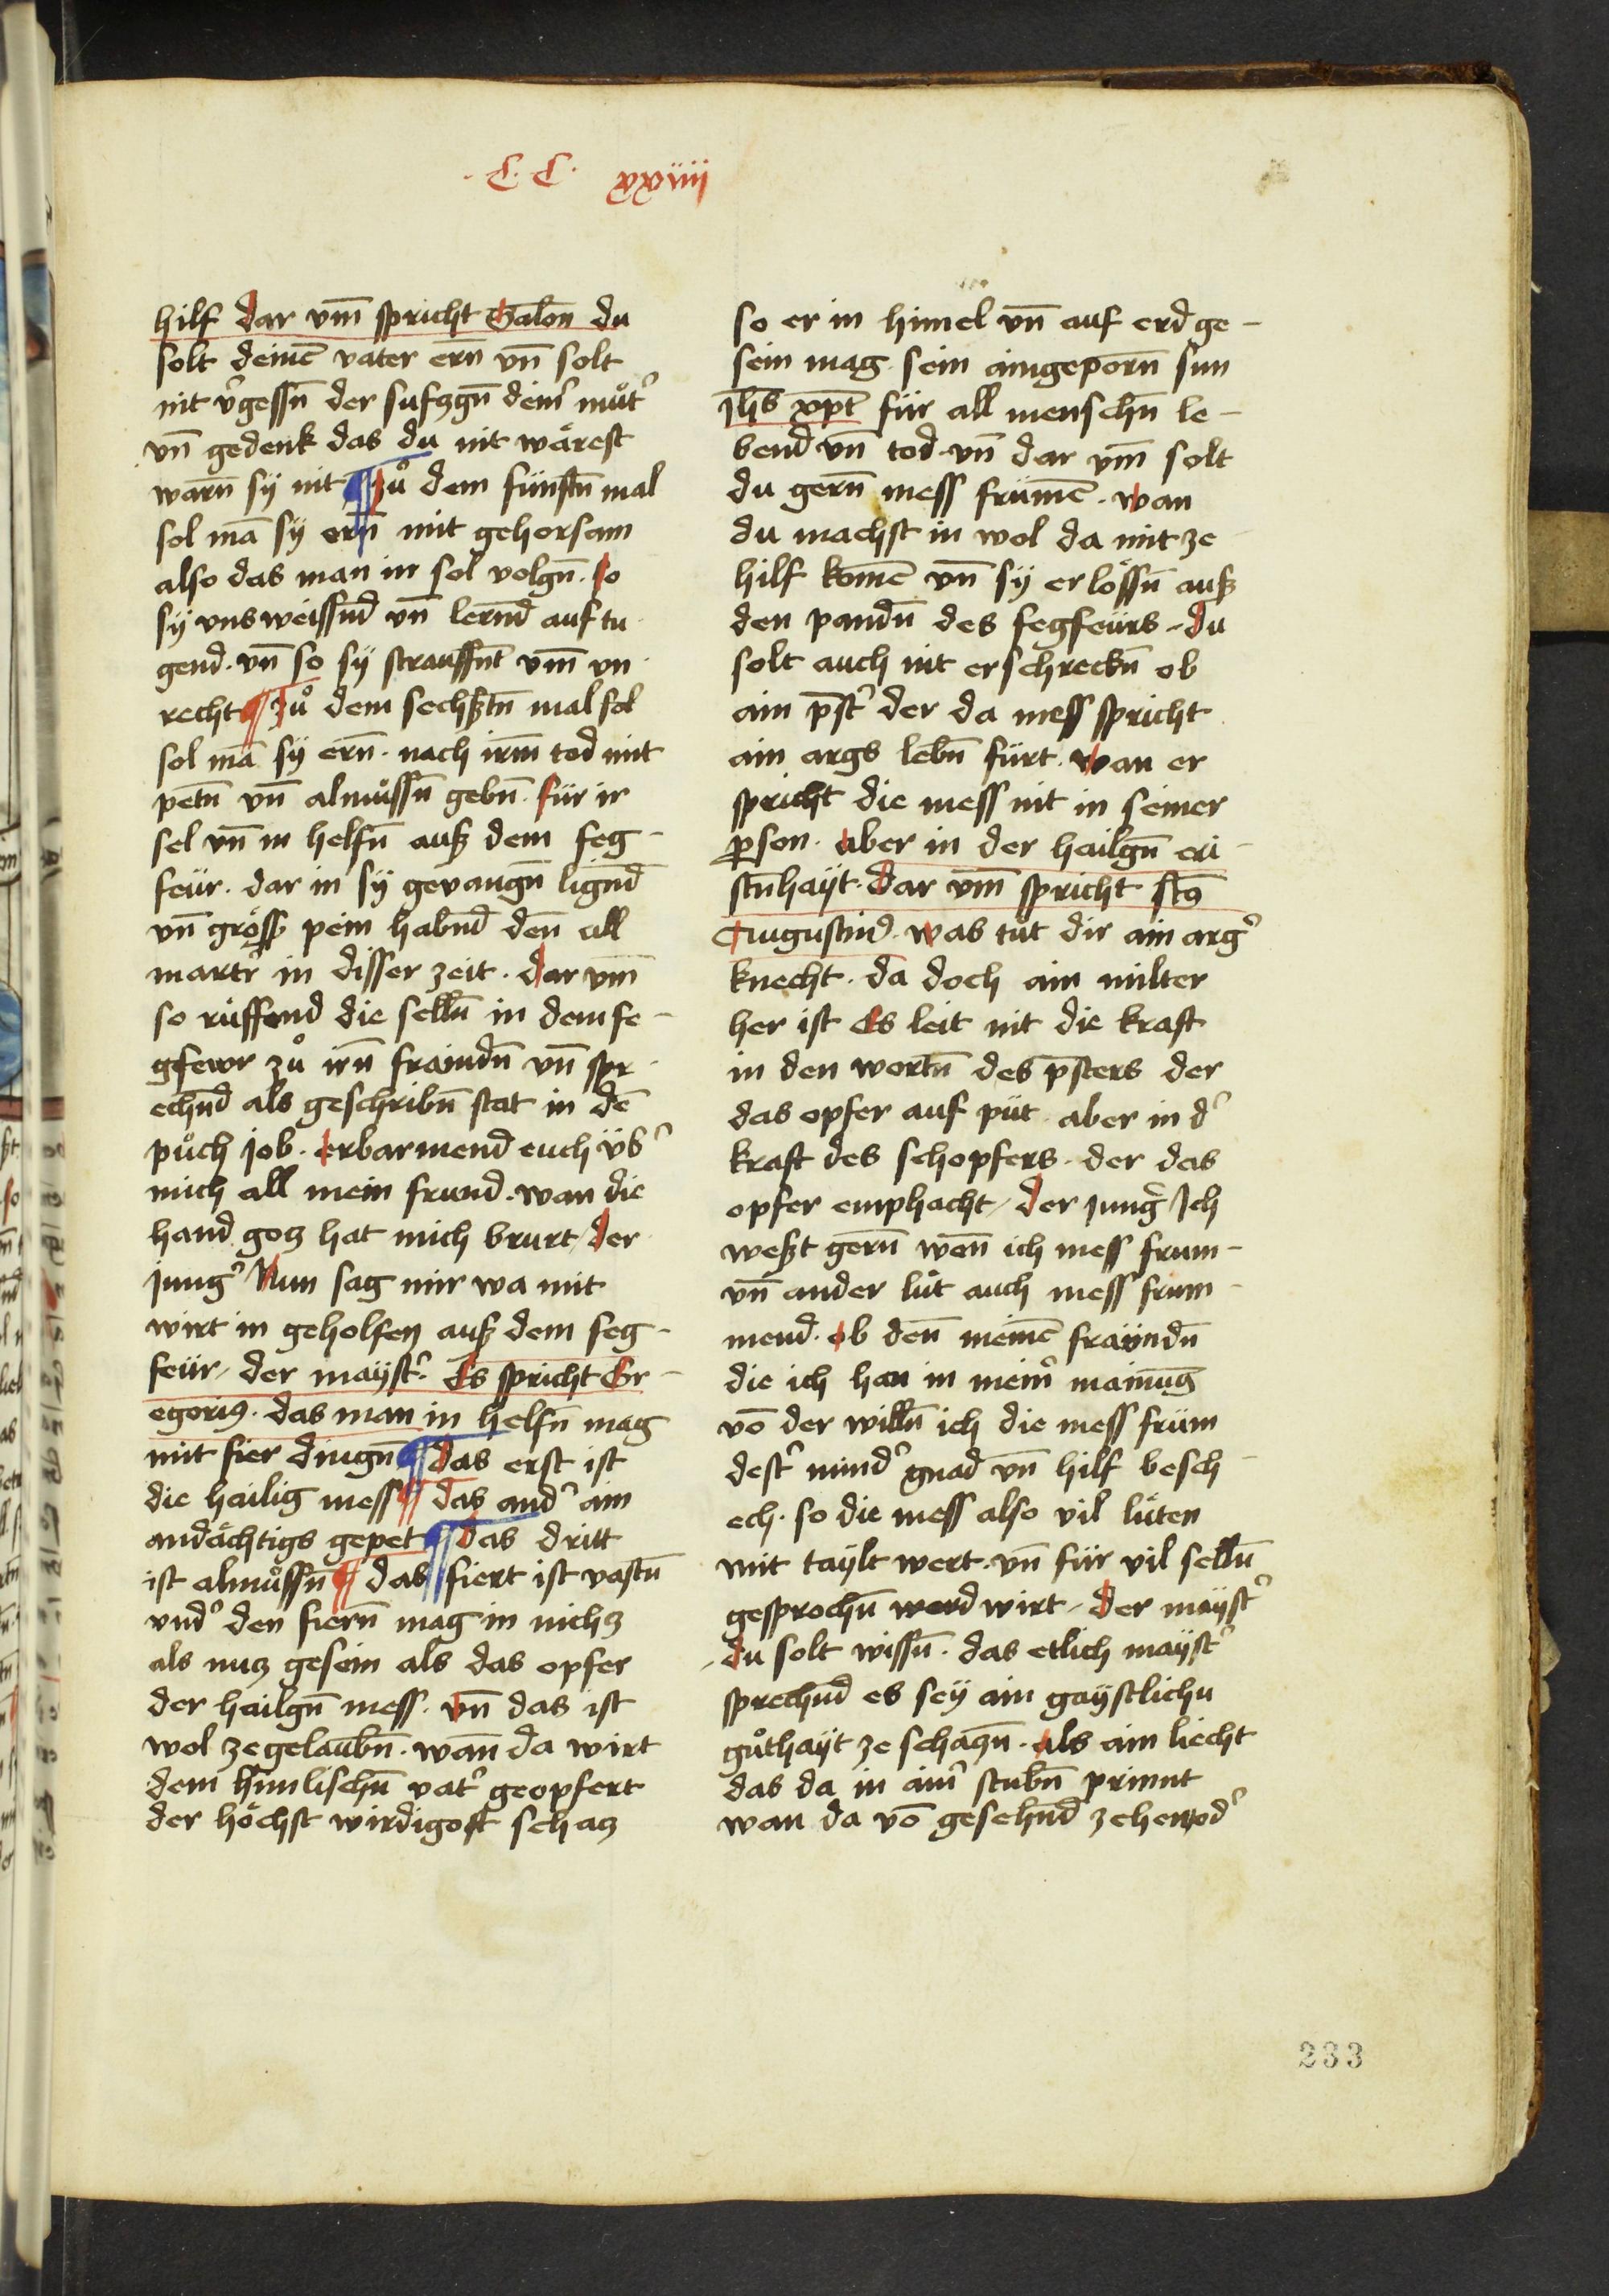 ·C·C· xxiiij
hilf dar vm̄ spricht Salon̄ du
solt deinē vater ern̄ vn̄ solt
nit v̓gessn̄ der sufzgn̄ dein̓ můt̓
vn̄ gedenk das du nit wärest
warn̄ sÿ nit ¶ Zů dem fünftn̄ mal
sol mā sÿ ern̄ mit gehorsam
also das man in sol volgn̄. so
sÿ vns weissnd̄ vn̄ lernd̄ auf tu
gend. vn̄ so sÿ strauffnt̄ vm̄ vn
recht ¶ Zů dem sechßtn̄ mal sol
sol mā sÿ ern̄. nach irm̄ tod mit
petn̄ vn̄ almůssn̄ gebn̄. für ir
sel vn̄ in helfn̄ auß dem feg-
feür. dar in sÿ gevangn̄ lignd̄
vn̄ gröss pein habnd̄ den̄ all
martr̓ in disser zeit. dar vm̄
so rüffend die selln̄ in dem fe-
gfewr zů irn̄ fraindn̄ vn̄ spr
echnd̄ als geschribn̄ stat in dē
půch job. erbarmend euch üb̓
mich all mein frund. wan die
hand gotz hat mich brurt / der
jung̓ Nun sag mir wa mit
wirt in geholfen auß dem feg-
feür / der maÿst̓. Es spricht Gr-
egoriꝰ. das man in helfn̄ mag
mit fier dingn̄ ¶ das erst ist
die heilig mess ¶ das and̓ ain
andächtigs gepet ¶ das dritt
ist almůssn̄ ¶ das fiert ist vastn̄
vnd̓ den fiern̄ mag in nichz
als nutz gesein als das opfer
der hailgn̄ mess. vn̄ das ist
wol ze gelaubn̄. wan̄ da wirt
dem himlischn̄ vat̓ geopfert
der höchst wirdigost schatz
so er in himel vn̄ auf erd ge-
sein mag. sein aingeporn̄ sun
Jhs̄ xpt̄ für all menschn̄ le-
bend vn̄ tod. vn̄ dar vm̄ solt
du gern̄ mess frümē. wan
du machst in wol da mit ze
hilf komē vn̄ sÿ er lössn̄ auß
den pandn̄ des fegfeürs. du
solt auch nit erschreckn̄ ob
ain pst̓ der da mess spricht
ain args lebn̄ fürt. wan er
spricht die mess nit in seiner
ꝑson. aber in der hailgn̄ cri
stn̄haÿt. dar vm̄ spricht stꝰ
Augustinꝰ. was tůt dir ain arg̓
knecht. da doch ain milter
her ist Es leit nit die kraft
in den wortn̄ des psters der
das opfer auf püt. aber in d̓
kraft des schopfers. der das
opfer emphacht / der jung̓ Ich
weßt gern̄ wen̄ ich mess frum-
vn̄ ander lüt auch mess frum-
mend. ob den̄ meinē fraÿndn̄
die ich han in mein̓ mainūg
vō der willn̄ ich die mess früm
dest̓ mind̓ gnad vn̄ hilf besch
ech. so die mess also vil lüten
mit taÿlt wert. vn̄ für vil selln̄
gesprochn̄ werd wirt / der maÿst̓
du solt wissn̄. das etlich maÿst̓
sprechnd̄ es seÿ ain gaÿstlichu
gůthaÿt ze schatzn̄. als ain liecht
das da in ain̓ stubn̄ prinnt
wan da vō gesehnd̄ zehen od̓
233